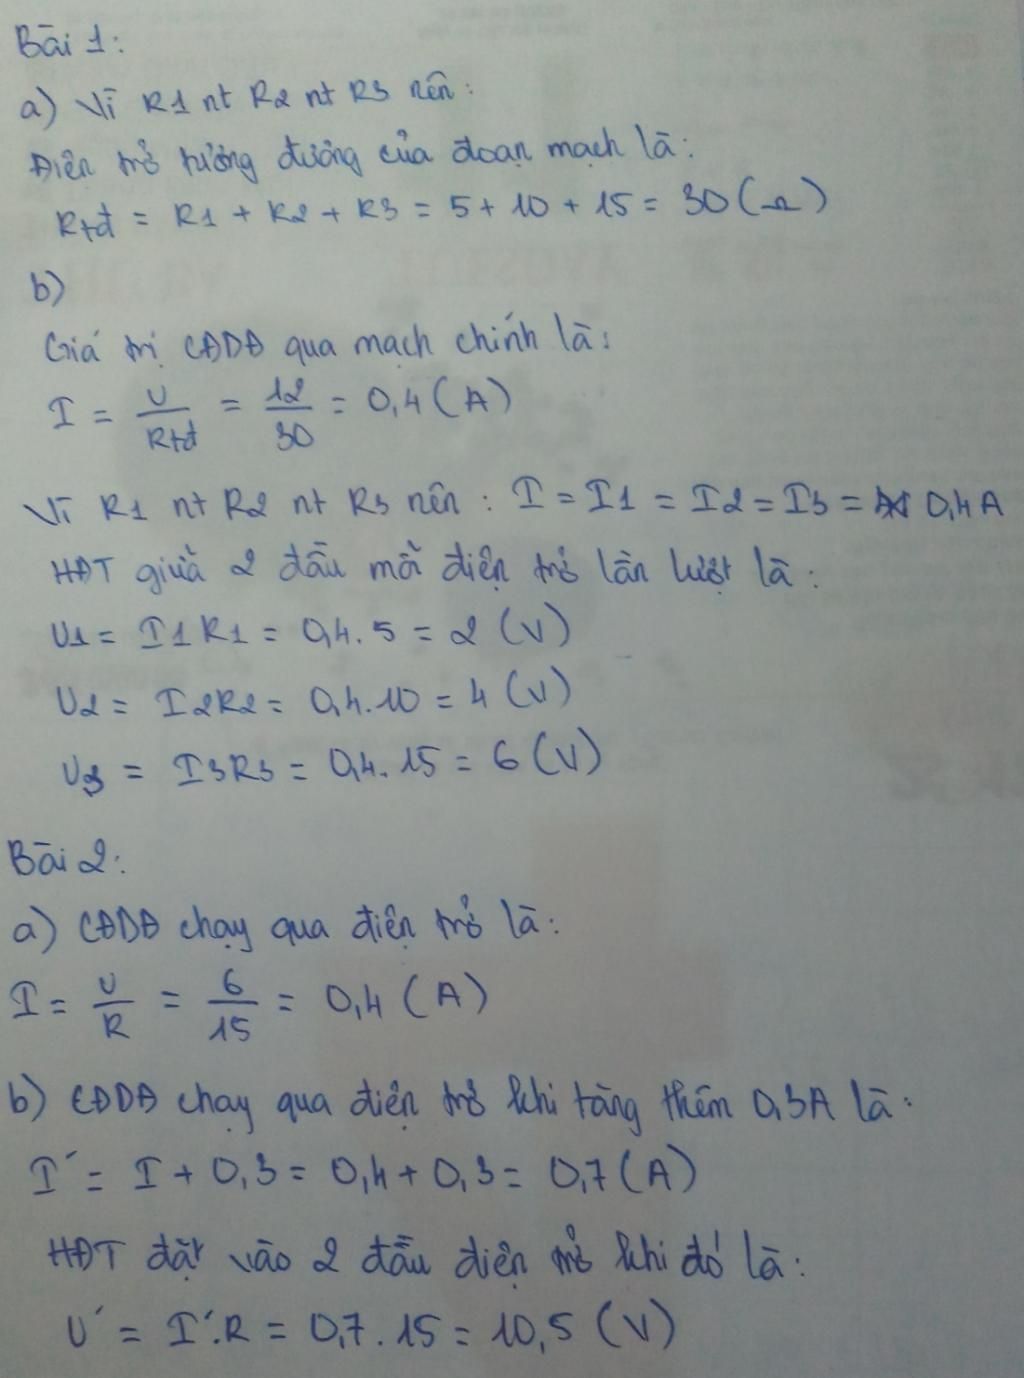 Bài 1:
a) Vì R1 nt R2 nt R3 nên:
Điện trở tương đương của đoạn mạch là:
Rtđ = R1 + R2 + R3 = 5 + 10 + 15 = 30 (Ω)
b)
Giá trị CĐDĐ qua mạch chính là:
I = U/Rtđ = 12/30 = 0,4 (A)
Vì R1 nt R2 nt R3 nên : I = I1 = I2 = I3 = 0,4A
HĐT giữa 2 đầu mỗi điện trở lần lượt là :
U1 = I1R1 = 0,4.5 = 2 (V)
U2 = I2R2 = 0,4.10 = 4 (V)
U3 = I3R3 = 0,4.15 = 6 (V)
Bài 2:
a) CĐDĐ chạy qua điện trở là:
I = U/R = 6/15 = 0,4 (A)
b) CĐDĐ chạy qua điện trở khi tăng thêm 0,3A là:
I' = I + 0,3 = 0,4 + 0,3 = 0,7 (A)
HĐT đặt vào 2 đầu điện trở khi đó là:
U' = I'.R = 0,7.15 = 10,5 (V)